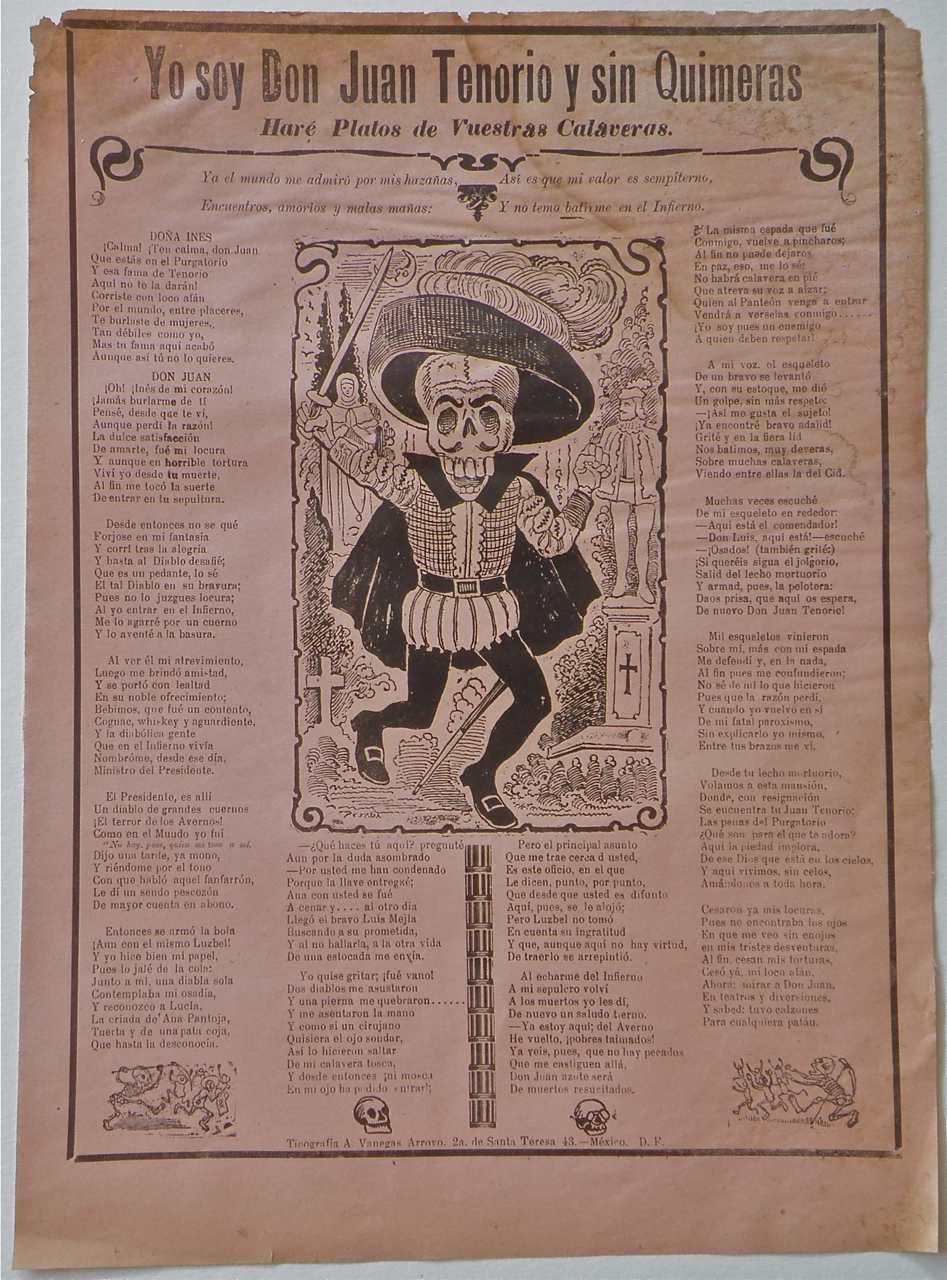 Yo soy Don Juan Tenorio y sin Quimeras
Haré Platos de Vuestras Calaveras.
Ya el mundo me admiró por mis hazañas,
Encuentros, amorios y malas mañas:
Así es que mi valor es sempiterno,
Y no temo batirme en el Infierno.
DOÑA INES
¡Calma! ¡Ten calma, don Juan
Que estás en el Purgatorio
Y esa fama de Tenorio
Aqui no te la darán!
Corriste con loco afán
Por el mundo, entre placeres,
Te burlaste de mujeres,
Tan débiles como yo,
Mas tu fama aquí acabó
Aunque asi tú no lo quieres.
DON JUAN
¡Oh! ¡Inés de mi corazón!
¡Jamás burlarme de tí
Pensé, desde que te ví,
Aunque perdí la razón!
La dulce satisfacción
De amarte, fué mi locura
Y aunque en horrible tortura
Viví yo desde tu muerte,
Al fin me tocó la suerte
De entrar en tu sepultura.
Desde entonces no se qué
Forjose en mi fantasía
Y corrí tras la alegría
Y hasta al Diablo desafié;
Que es un pedante, lo sé
El tal Diablo en su bravura;
Pues no lo juzgues locura;
Al yo entrar en el Infierno,
Me lo agarré por un cuerno
Y lo aventé a la basura.
Al ver él mi atrevimiento,
Luego me brindó amistad,
Y se portó con lealtad
En su noble ofrecimiento;
Bebimos, que fué un contento,
Cognac, whiskey y aguardiente,
Y la diabólica gente
Que en el Infierno vivía
Nombróme, desde ese día,
Ministro del Presidente.
El Presidente, es allí
Un diablo de grandes cuernos
¡El terror de los Avernos!
Como en el Mundo yo fui
"No hay, pues, quien me tosa a mí,
Dijo una tarde, ya mono,
Y riéndome por el tono
Con que habló aquel fanfarrón,
Le dí un sendo pescozón
De mayor cuenta en abono.
Entonces se armó la bola
¡Aun con el mismo Luzbel!
Y yo hice bien mi papel,
Pues lo jalé de la cola:
Junto a mí, una diabla sola
Contemplaba mi osadía,
Y reconozco a Lucía,
La criada de Ana Pantoja,
Tuerta y de una pata coja,
Que hasta la desconocía.
—¿Qué haces tú aquí? pregunté
Aun por la duda asombrado
—Por usted me han condenado
Porque la llave entregué;
Ana con usted se fué
A cenar y.... al otro dia
Llegó el bravo Luis Mejía
Buscando a su prometida,
Y al no hallarla, a la otra vida
De una estocada me envía.
Yo quise gritar; ¡fué vano!
Dos diablos me asustaron
Y una pierna me quebraron......
Y me asentaron la mano
Y como si un cirujano
Quisiera el ojo sondar,
Así lo hicieron saltar
De mi calavera tosca,
Y desde entonces ¡ni mosca
En mi ojo ha podido entrar!;
Pero el principal asunto
Que me trae cerca d usted,
Es este oficio, en el que
Le dicen, punto, por punto,
Que desde que usted es difunto
Aqui, pues, se le alojó;
Pero Luzbel no tomó
En cuenta su ingratitud
Y que, aunque aquí no hay virtud,
De traerlo se arrepintió.
Al echarme del Infierno
A mi sepulcro volví
A los muertos yo les dí,
De nuevo un saludo tierno.
—Ya estoy aquí; del Averno
He vuelto, ¡pobres taimados!
Ya veis, pues, que no hay pecados
Que me castiguen allá,
Don Juan azote será
De muertos resucitados.
La misma espada que fué
Conmigo, vuelve a pincharos;
Al fin no puede dejaros
En paz, eso, me lo sé;
No habrá calavera en pié
Que atreva su voz a alzar;
Quien al Panteón venga a entrar
Vendrá a verselas conmigo......
¡Yo soy pues un enemigo
A quien deben respetar!
A mi voz, el esqueleto
De un bravo se levantó
Y, con su estoque, me dió
Un golpe, sin más respeto:
—¡Así me gusta el sujeto!
¡Ya encontré bravo adalid!
Grité y en la fiera lid
Nos batimos, muy deveras,
Sobre muchas calaveras,
Viendo entre ellas la del Cid.
Muchas veces escuché
De mi esqueleto en rededor:
—Aqui está el comendador!
—Don Luis, aqui está!—escuché
—¡Osados! (también grité:)
¡Si queréis sigua el jolgorio,
Salid del lecho mortuorio
Y armad, pues, la pelotera:
Daos prisa, que aqui os espera,
De nuevo Don Juan Tenorio!
Mil esqueletos vinieron
Sobre mí, más con mi espada
Me defendí y, en la nada,
Al fin pues me confundieron;
No sé de mí lo que hicieron
Pues que la razón perdí,
Y cuando yo vuelvo en sí
De mi fatal paroxismo,
Sin explicarlo yo mismo,
Entre tus brazos me ví.
Desde tu lecho mortuorio,
Volamos a esta mansión,
Donde, con resignación
Se encuentra tu Juan Tenorio;
Las penas del Purgatorio
¿Qué son para el que te adora?
Aqui la piedad implora,
De ese Dios que está en los cielos,
Y aqui vivimos, sin celos,
Amándonos a toda hora.
Cesaron ya mis locuras,
Pues no encontraba los ojos
En que me veo sin enojos
en mis tristes desventuras,
Al fin, cesan mis torturas,
Cesó yá, mi loco afán,
Ahora: mirar a Don Juan,
En teatros y diversiones,
Y sabed: tuvo calzones
Para cualquiera patán.
POSADA
Tipografía A. Vanegas Arroyo, 2a. de Santa Teresa 43.—México, D. F.